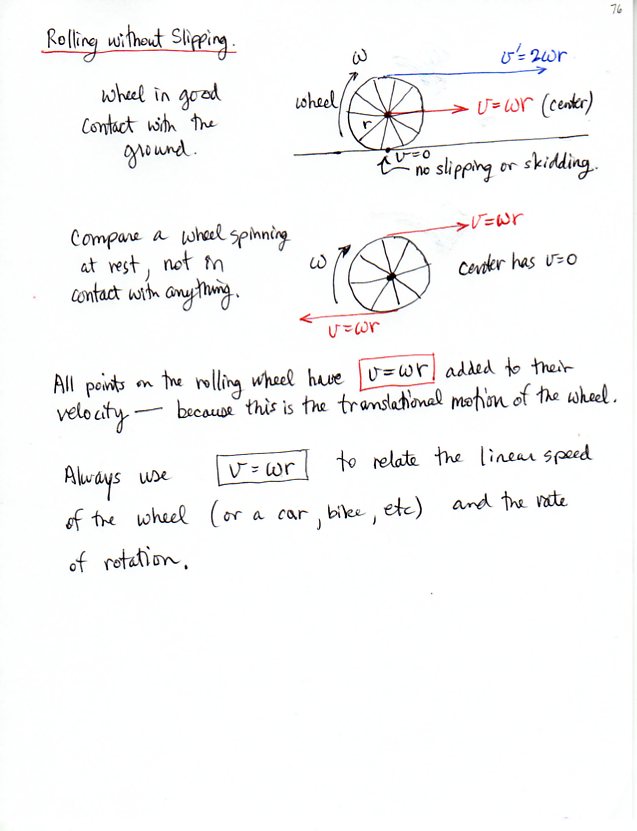 76
Rolling without Slipping.
Wheel in good
contact with the
ground.
ω
v'=2ωr
wheel
v=ωr (center)
r
v=0
no slipping or skidding.
Compare a wheel spinning
at rest, not in
contact with anything.
v=ωr
ω
center has v=0
v=ωr
All points on the rolling wheel have v=ωr added to their
velocity — because this is the translational motion of the wheel.
Always use v=ωr to relate the linear speed
of the wheel (or a car, bike, etc) and the rate
of rotation.